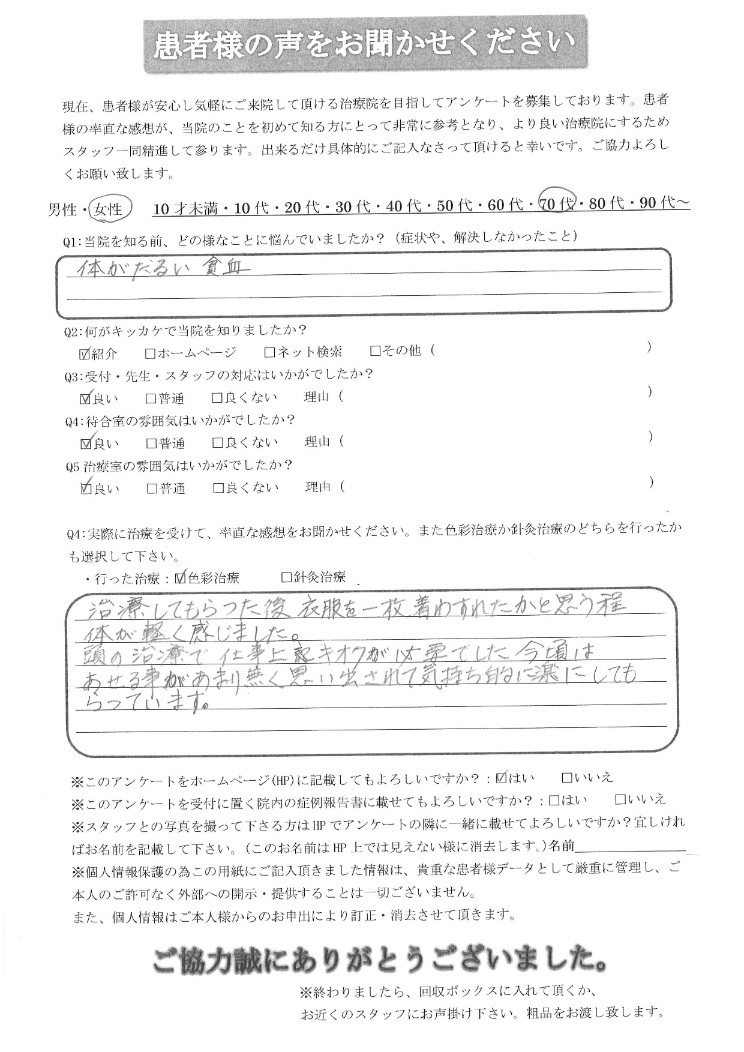 患者様の声をお聞かせください
現在、患者様が安心し気軽にご来院して頂ける治療院を目指してアンケートを募集しております。患者
様の率直な感想が、当院のことを初めて知る方にとって非常に参考となり、より良い治療院にするため
スタッフ一同精進して参ります。出来るだけ具体的にご記入なさって頂けると幸いです。ご協力よろし
くお願い致します。
男性・女性 10才未満・10代・20代・30代・40代・50代・60代・70代・80代・90代～
Q1:当院を知る前、どの様なことに悩んでいましたか？（症状や、解決しなかったこと）
体がだるい 貧血
Q2:何がキッカケで当院を知りましたか？
☑紹介 □ホームページ □ネット検索 □その他（ ）
Q3:受付・先生・スタッフの対応はいかがでしたか？
☑良い □普通 □良くない 理由（ ）
Q4:待合室の雰囲気はいかがでしたか？
☑良い □普通 □良くない 理由（ ）
Q5治療室の雰囲気はいかがでしたか？
☑良い □普通 □良くない 理由（ ）
Q4:実際に治療を受けて、率直な感想をお聞かせください。また色彩治療か針灸治療のどちらを行ったか
も選択して下さい。
・行った治療：☑色彩治療 □針灸治療
治療してもらった後 衣服を一枚着わすれたかと思う程
体が軽く感じました。
頭の治療で仕事上 キオクが必要でした 今頃は
あせる事があまり無く思い出されて気持ち的に楽にしても
らっています。
※このアンケートをホームページ(HP)に記載してもよろしいですか？：☑はい □いいえ
※このアンケートを受付に置く院内の症例報告書に載せてもよろしいですか？：□はい □いいえ
※スタッフとの写真を撮って下さる方はHPでアンケートの隣に一緒に載せてよろしいですか？宜しけれ
ばお名前を記載して下さい。（このお名前はHP上では見えない様に消去します。）名前
※個人情報保護の為この用紙にご記入頂きました情報は、貴重な患者様データとして厳重に管理し、ご
本人のご許可なく外部への開示・提供することは一切ございません。
また、個人情報はご本人様からのお申出により訂正・消去させて頂きます。
ご協力誠にありがとうございました。
※終わりましたら、回収ボックスに入れて頂くか、
お近くのスタッフにお声掛け下さい。粗品をお渡し致します。